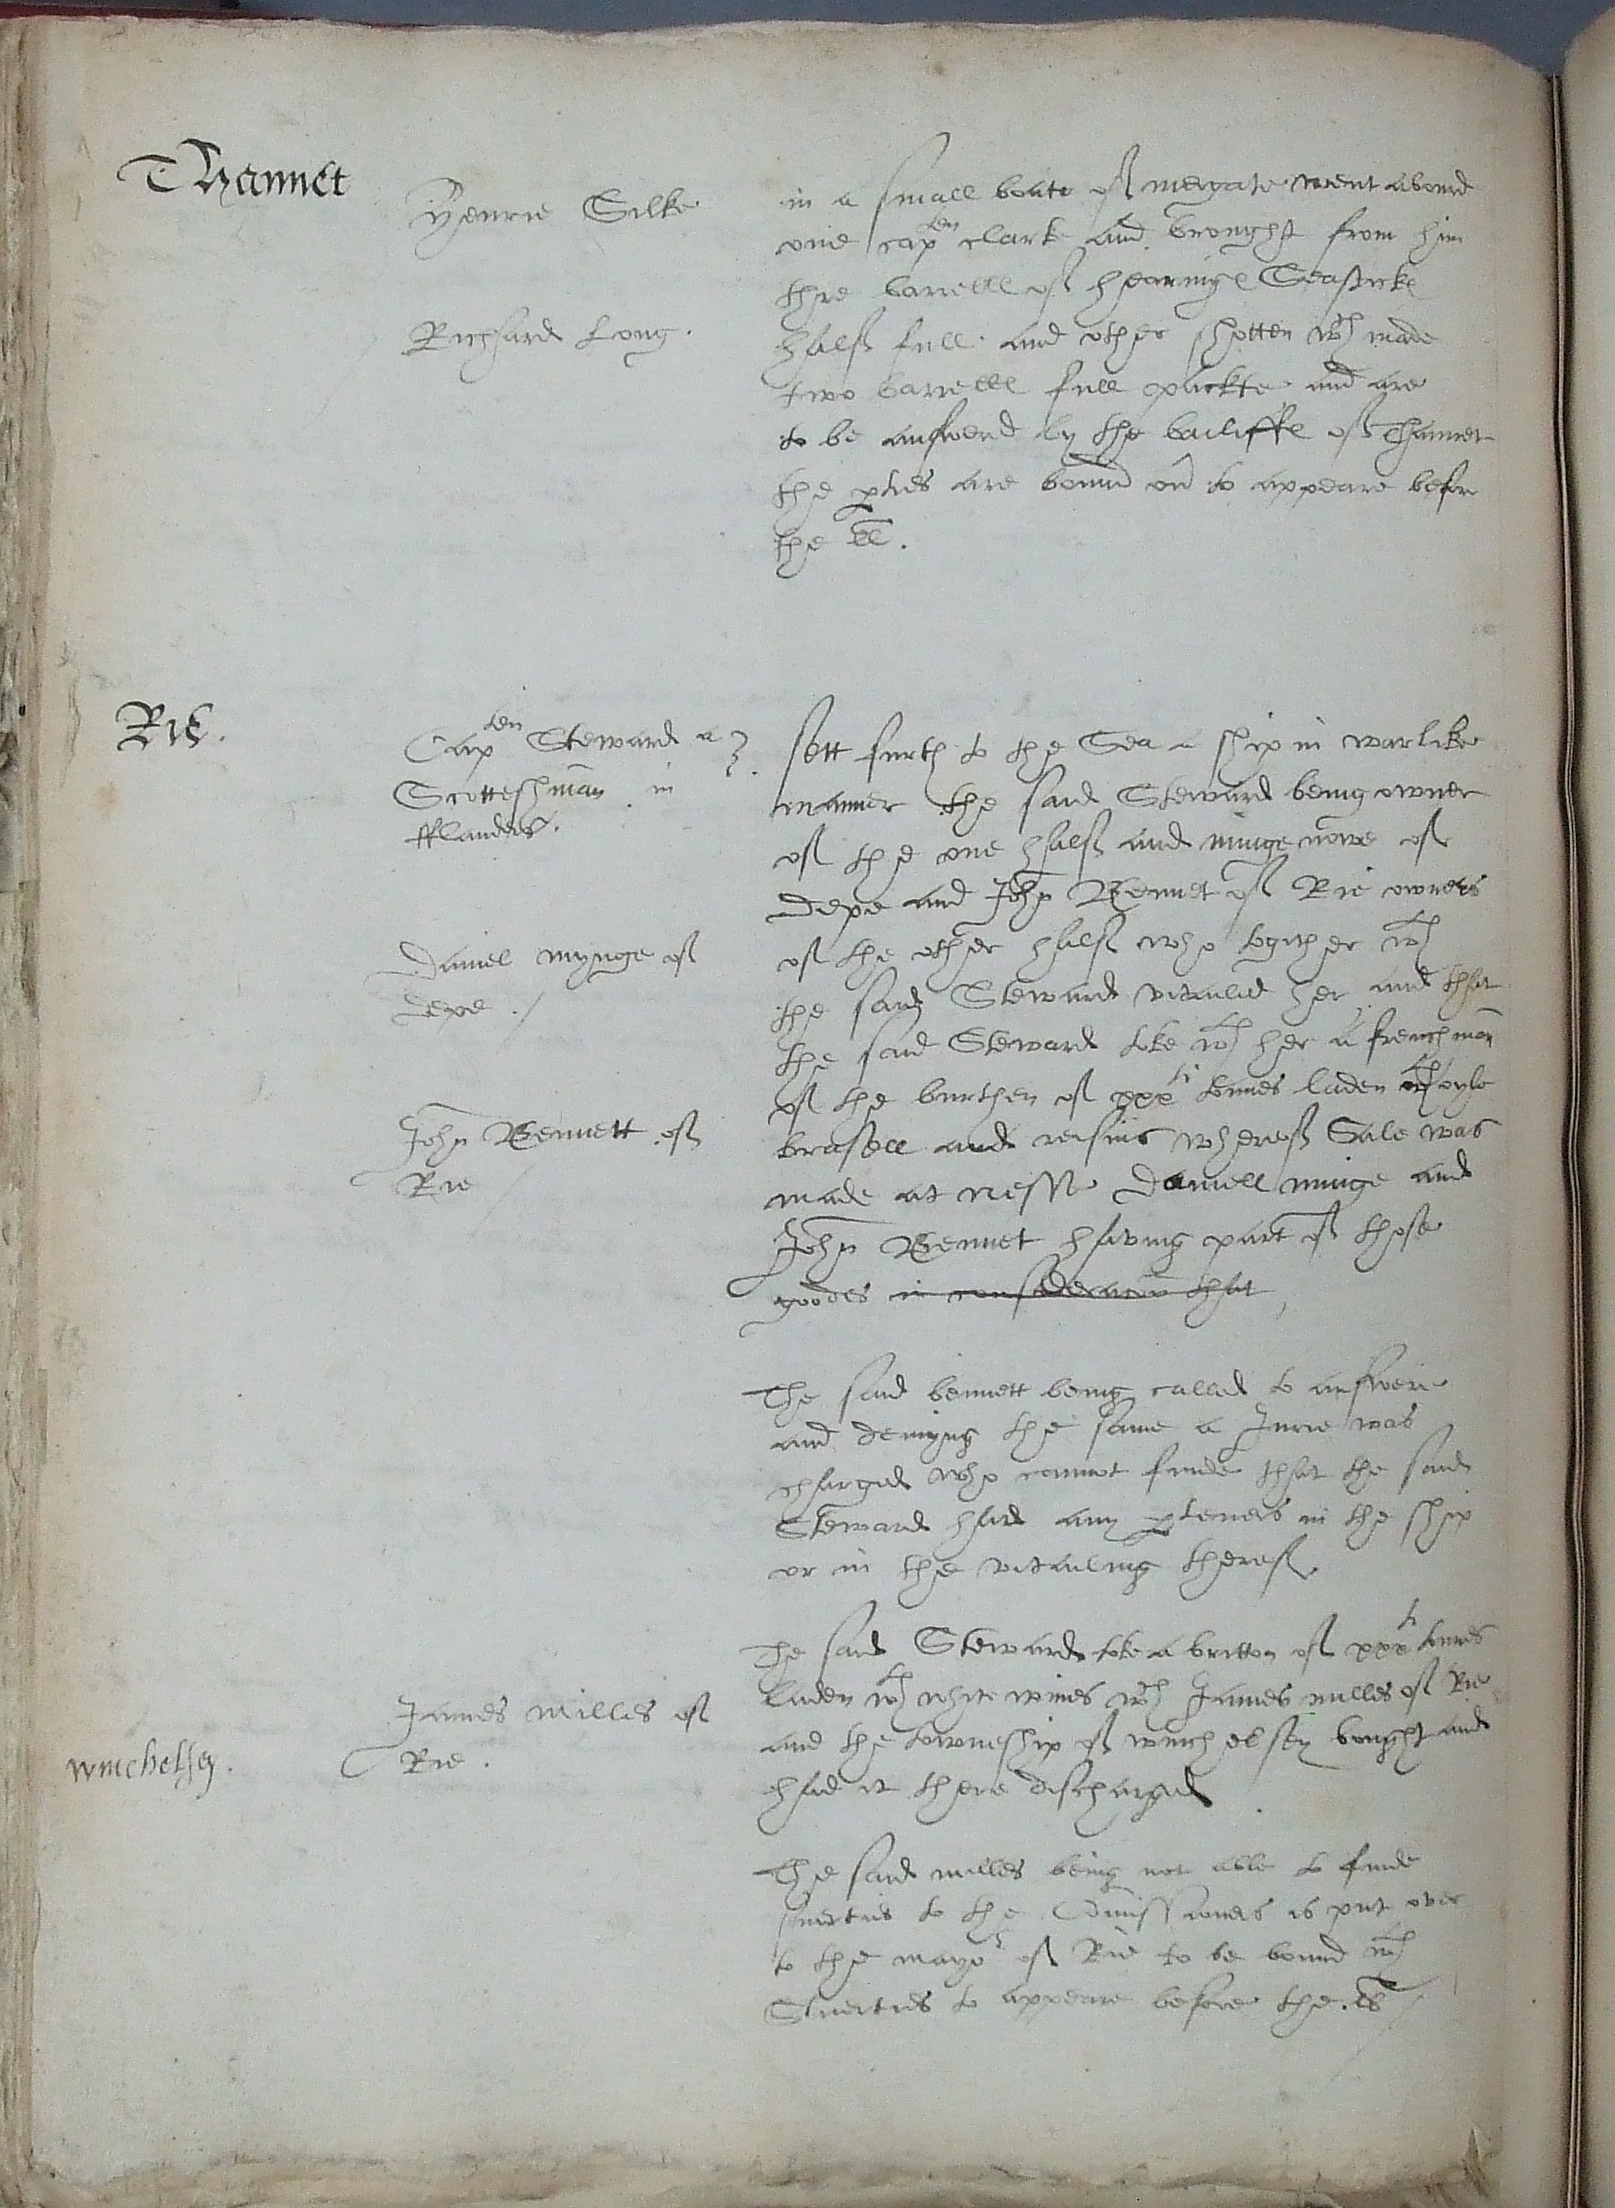 Thannet
Henrie Silke
Richard Long .
in a small boate of mergate went abourd
one cap ten clarke and brought from him
thre barrelle of hearinge Seasticke
half full . and other shotten wch made
two barrelle full packte and are
to be answerd by the bailiffe of Thannet
the pties are bound ou to appeare befor
the ll .
Rie .
Cap ten Steward a
Scotteshman . in
fflanders .
Daniel Mynge of
Depe . /
John Bennett of
Rie
sett furth to the Sea a ship in warlike
manner the said Steward being owner
of the one half and minge nowe of
Depe and John Bennet of Rie owners
of the other half who togither wth
the said Steward vitaled her and that
the said Steward toke wth her a frenchman
of the burthen of xxx ti tonnes laden wth oyle
brasell and reisins whereof Sale was
made at nesse Daniell minge and
John Bennet having part of those
goodes in consideracon that
The said bennett being called to answere
and denyng the same a Jurie was
charged who cannot finde that the said
Steward had any pteners in the ship
or in the vitauling therof
James Milles of
Rie .
winchelsey .
The said Steward toke a britton of xxx ti tonnes
laden wth white wines wch James milles of Rie
and the towneship of winchelsey bought and
had it there discharged
The said milles being not able to finde
suerties to the Comissioners is put over
to the mayor of Rie to be bound wth
Suerties to appeare before the . ls /